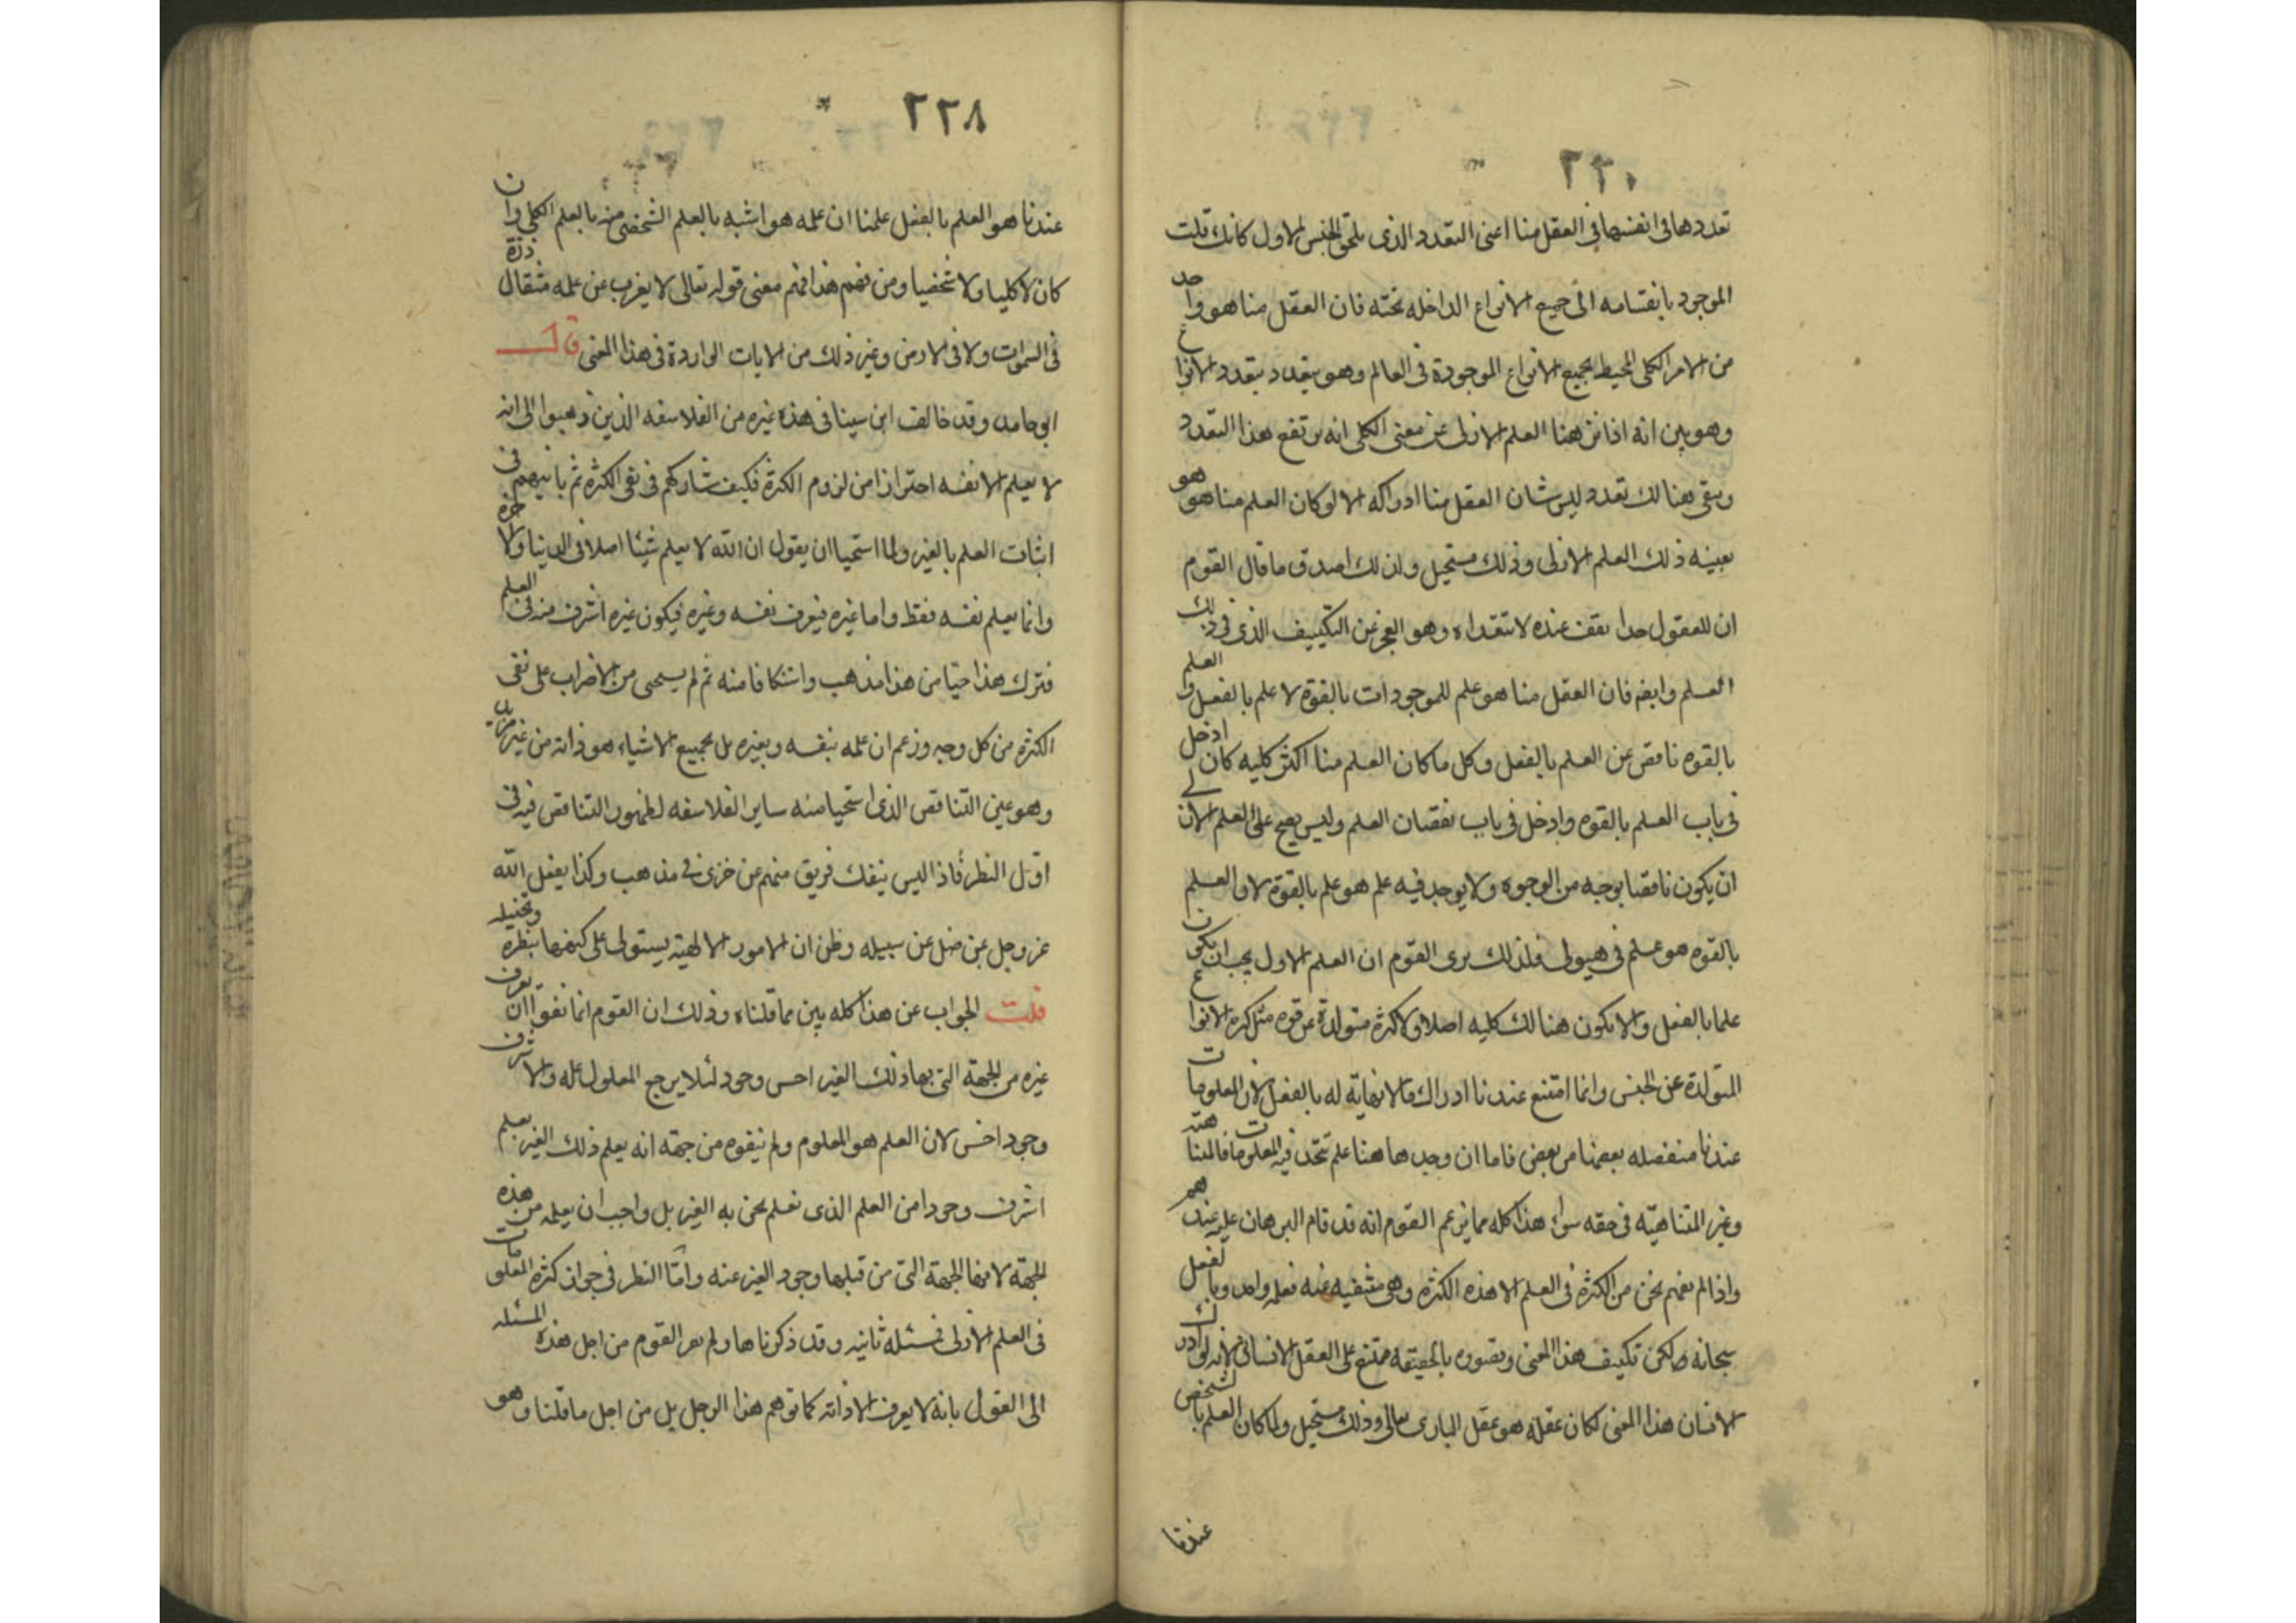 ٢٢٠
تعددها فى انفسها فى العقل منا اعنى التعدد الذى يلحق الجنس الاول كانك قلت
الموجود بانقسامه الى جميع الانواع الداخله تحته فان العقل منا هو واحد
من الامر الكلى المحيط بجميع الانواع الموجودة فى العالم وهو يتعدد بتعدد الانواع
وهو بين انه اذا نزهنا العلم الازلى عن معنى الكلى انه يرتفع هذا التعدد
ويبقى هنالك تعدد ليس شان العقل منا ادراكه الا لو كان العلم منا هو هو
بعينه ذلك العلم الازلى وذلك مستحيل ولذلك اصدق ما قال القوم
ان للعقول حدا تقف عنده لا تتعداه وهو العجز عن التكييف الذى فى ذلك
العلم وايضه فان العقل منا هو علم للموجودات بالقوة لا علم بالفعل والعلم
بالقوه ناقص عن العلم بالفعل وكل ما كان العلم منا اكثر كليه كان ادخل
فى باب العلم بالقوه وادخل فى باب نقصان العلم وليس يصح على العلم الازلى
ان يكون ناقصا بوجه من الوجوه ولا يوجد فيه علم هو علم بالقوة لان العلم
بالقوه هو علم فى هيولى فلذلك يرى القوم ان العلم الاول يجب ان يكون
علما بالفعل والا يكون هنالك كليه اصلا ولا كثرة متولدة عن قوه مثل كثره الانواع
المتولدة عن الجنس وانما امتنع عندنا ادراك ما لا نهاية له بالفعل لان المعلومات
عندنا منفصله بعضها من بعض فاما ان وجد هاهنا علم تتحد فيه المعلومات فالمتناهيته
وغير المتناهيّه فى حقه سواء هذا كله مما يزعم القوم انه قد قام البرهان عليه عندهم
واذا لم نفهم نحن من الكثرة فى العلم الا هذه الكثره وهى منتفيه عنه فعلمه واحد وبالفعل
سبحانه لكن تكييف هذا المعنى وتصوره بالحقيقه ممتنع على العقل الانسانى لانه لو ادرك
الانسان هذا المعنى لكان عقله هو عقل البارى تعالى وذلك مستحيل ولما كان العلم بالشخص
عندنا
٢٢٨
عندنا هو العلم بالفعل علمنا ان علمه هو اشبه بالعلم الشخصى منه بالعلم الكلى وان
كان لا كليا ولا شخصيا ومن فهم هذا فهم معنى قوله تعالى لا يعزب عن علمه مثقال ذرّة
فى السموات ولا فى الارض وغير ذلك من الايات الواردة فى هذا المعنى قال
ابو حامد وقد خالف ابن سينا فى هذه غيره من الفلاسفه الذين ذهبوا الى انه
لا يعلم الا نفسه احترازا من لزوم الكثرة فكيف شاركهم فى نفى الكثره ثم باينهم فى
اثبات العلم بالغير ولما استحيا ان يقول ان الله لا يعلم شيئا اصلا فى الدنيا والاخره
وانما يعلم نفسه فقط واما غيره فيعرف نفسه وغيره فيكون غيره اشرف منه فى العلم
فترك هذا حيا من هذا مذهب واستنكافا منه ثم لم يستحى من الاضراب على نفى
الكثره من كل وجه وزعم ان علمه بنفسه وبغيره بل بجميع الاشياء هو ذاته من غير مزيد
وهو عين التناقض الذى استحيا منه ساير الفلاسفه لظهور التناقض فيه فى
اول النظر فاذا ليس ينفك فريق منهم عن خزى فى مذهب وكذا يفعل الله
عز وجل بمن ضل عن سبيله وظن ان الامور الالهية يستولى على كنهها بنظره وتخييله
قلت الجواب عن هذا كله بين مما قلناه وذلك ان القوم انما نفوا ان يعرف
غيره من الجهة التى بها ذلك الغير اخس وجود لئلا يرجع المعلول علله والاشرف
وجود اخس لان العلم هو المعلوم ولم ينفوه من جهة انه يعلم ذلك الغير بعلم
اشرف وجودا من العلم الذى نعلم نحن به الغير بل واجب ان يعلمه من هذه
الجهة لانها الجهة التى من قبلها وجود الغير عنه وامّا النظر فى جواز كثره المعلومات
فى العلم الازلى فمسئله ثانيه وقد ذكرناها ولم يفر القوم من اجل هذه المسئله
الى القول بانه لا يعرف الا ذاته كما توهم هذا الرجل بل من اجل ما قلنا وهو